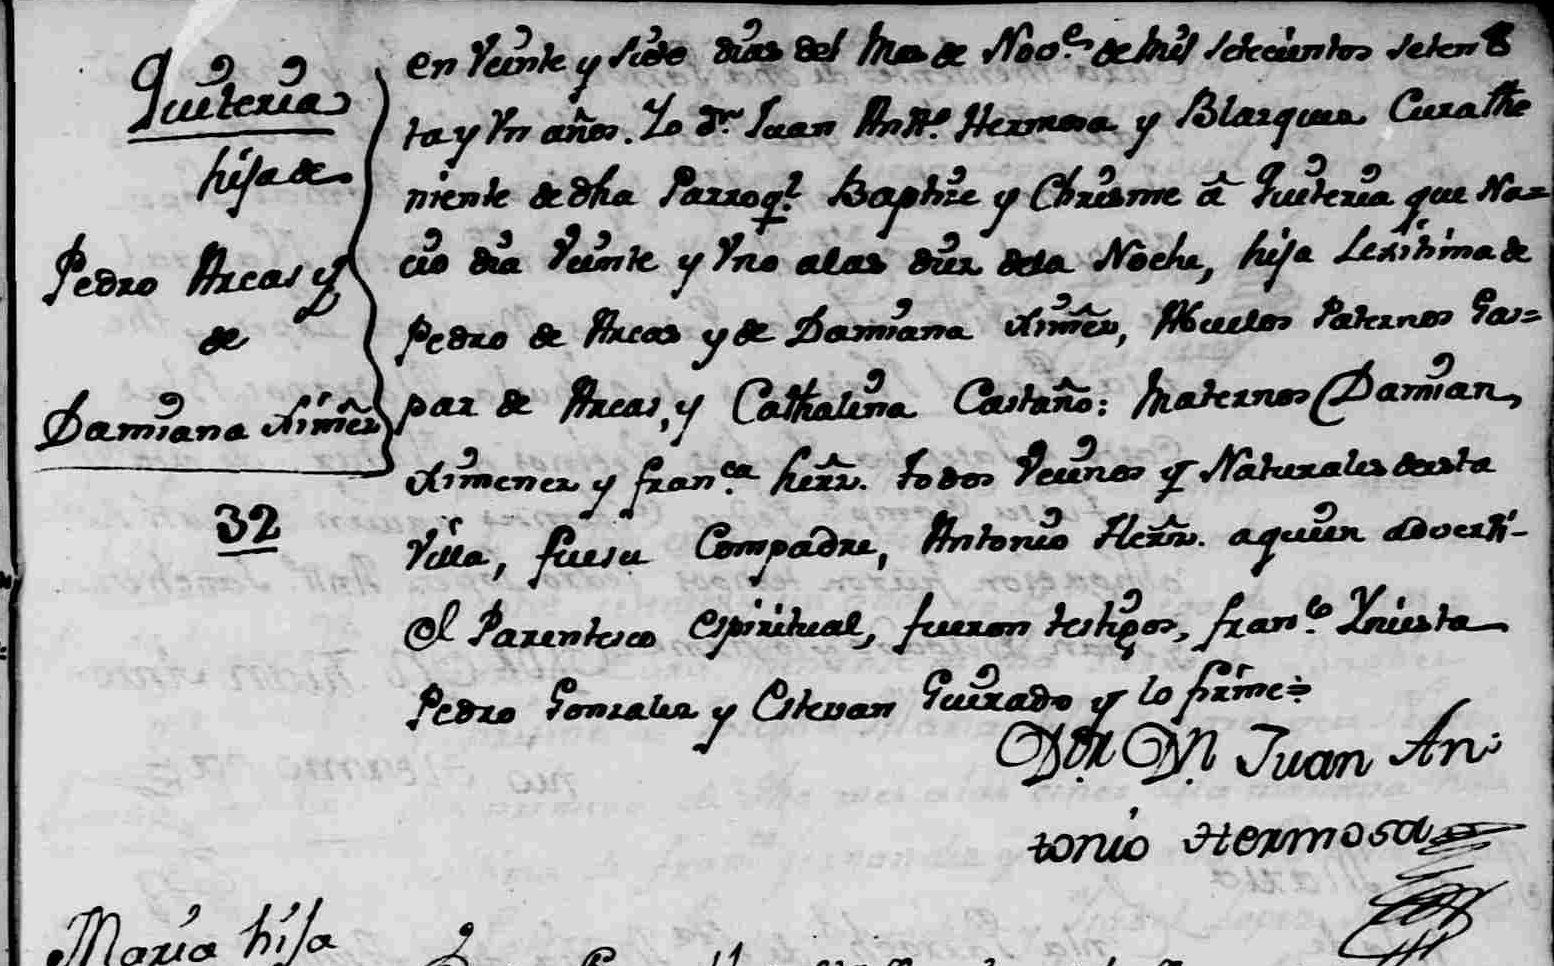 Quiteria
hija de
Pedro Arcas y
de
Damiana Ximẽz
32
en Veinte y siete dias del Mes de Nov.e de mil setecientos seten
ta y Vn años. Yo Dr. Juan Antt.o Hermosa y Blazquez Cura the
niente de dha Parroq.l Baptize y Chrisme â Quiteria que Na=
cio dia Veinte y Vno a las diez dela Noche, hija Lexitima de
Pedro de Arcas y de Damiana Ximẽz, Abuelos Paternos Gas=
par de Arcas, y Cathalina Castaño: Maternos Damian
Ximenez y fran.ca herñz. todos Vecinos y Naturales desta
Villa, fue su Compadre, Antonio Herñz. a quien adverti-
el Parentesco espiritual, fueron testigos, fran.co Yniesta
Pedro Gonzalez y Estevan Guirado y lo firme=
Dor. Dn. Juan An.
tonio Hermosa
Maria hija